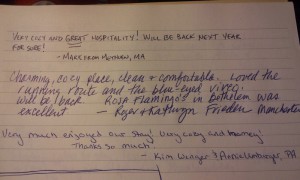 VERY COZY AND GREAT HOSPITALITY! WILL BE BACK NEXT YEAR
FOR SURE!
- MARK FROM METHUEN, MA
Charming, cozy place, clean + comfortable. Loved the
running route and the blue-eyed
will be back. Rosa Flamingo's in Bethlehem was
excellent - Roger + Kathryn Manchester
Very much enjoyed our stay! Very cozy and homey!
Thanks so much
- Kim PA